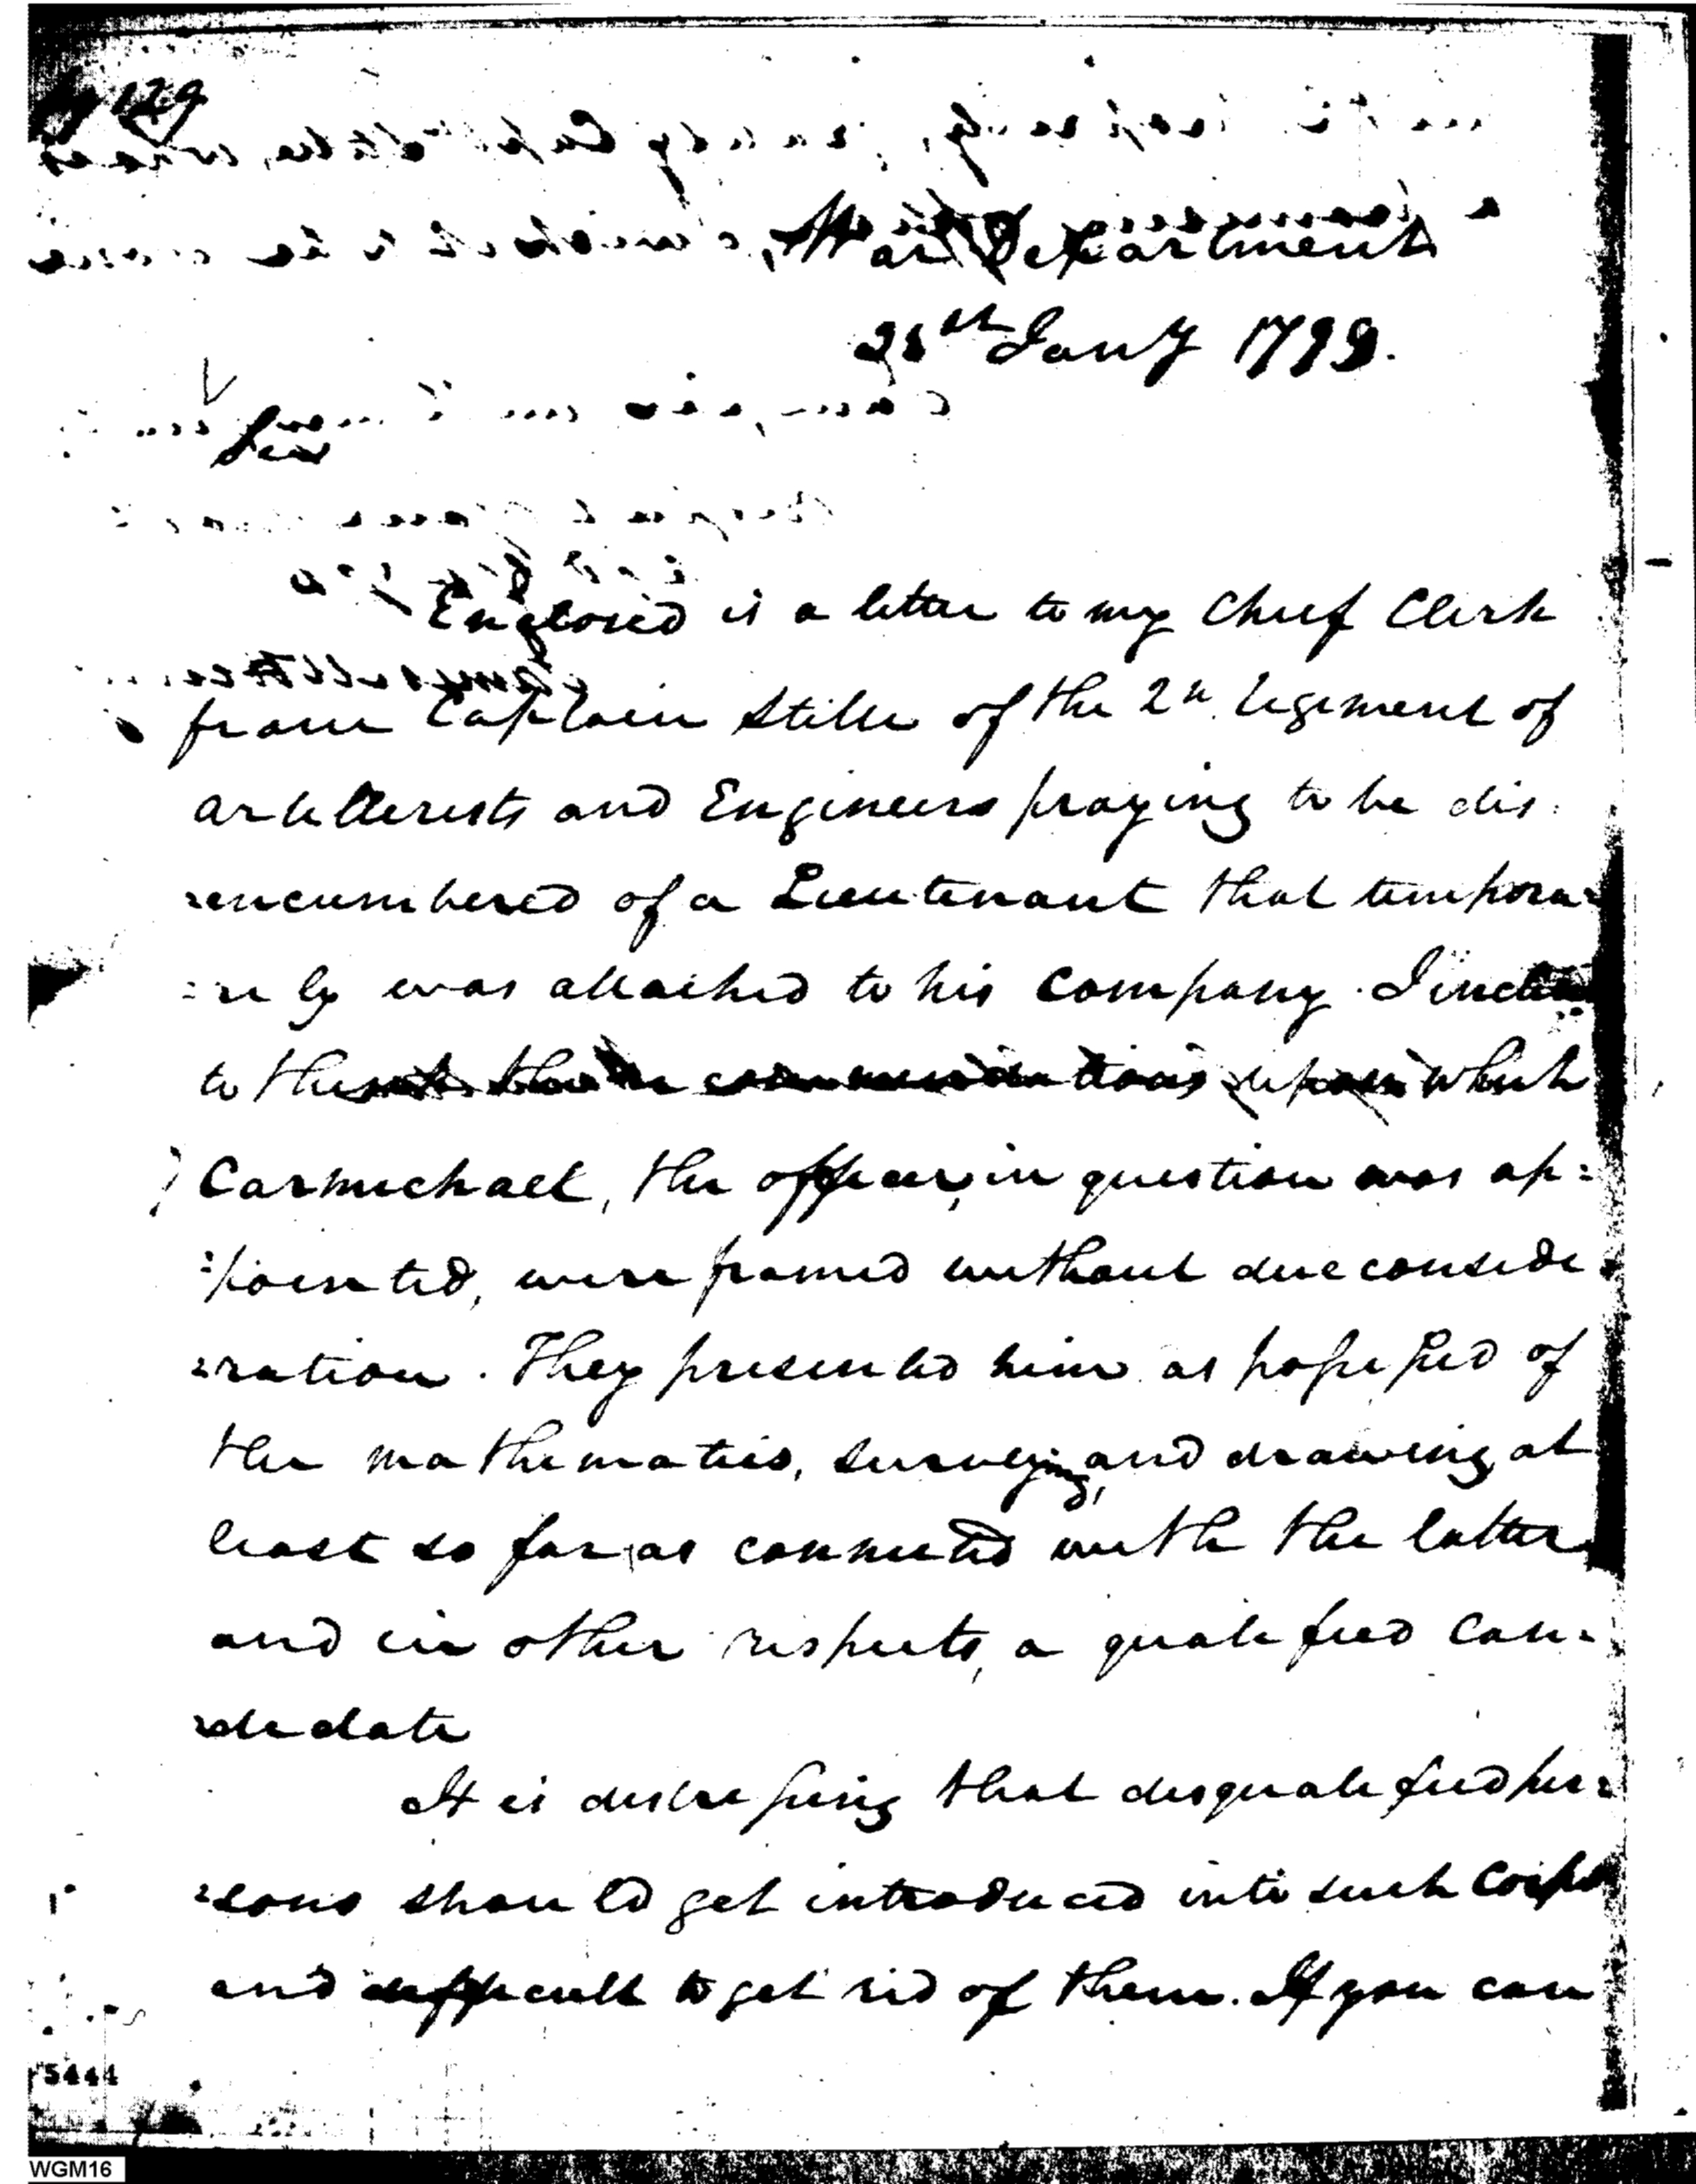 129
War Department
21st Jany 1799.
Sir
Enclosed is a letter to my Chief Clerk
from Captain Stille of the 2d. Regiment of
artillerists and Engineers praying to be dis-
=encumbered of a Lieutenant that tempora=
=rily was attached to his company. I incline
to think the recommendations upon which
Carmichael, the officer, in question was ap=
=pointed, were framed without due conside
=ration. They presented him as possessed of
the mathematics, surveying, and drawing at
least so far as connected with the latter
and in other respects, a qualified can=
=didate
It is distressing that disqualified per=
=sons should get introduced into such Corps
and difficult to get rid of them. If you can
5444
WGM16